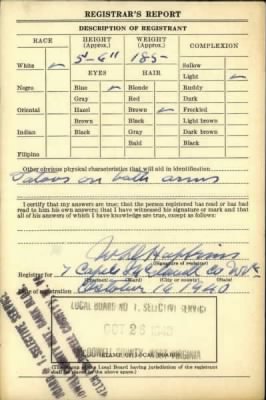 REGISTRAR'S REPORT
DESCRIPTION OF REGISTRANT
RACE HEIGHT (Approx.) WEIGHT (Approx.) COMPLEXION
White 5'-6" 185- Sallow
EYES HAIR Light
Negro Blue Blonde Ruddy
Gray Red Dark
Oriental Hazel Brown Freckled
Brown Black Light brown
Indian Black Gray Dark brown
Bald Black
Filipino
Other obvious physical characteristics that will aid in identification
on both arms
I certify that my answers are true; that the person registered has read or has
had read to him his own answers; that I have witnessed his signature or mark and that
all of his answers of which I have knowledge are true, except as follows:
Hopkins
(Signature of registrar)
Registrar for 7
(Precinct) (Ward) (City or county) (State)
Date of registration October 16, 1940
LOCAL BOARD NO 1, SELECTIVE SERVICE
OCT 26 1940
McDOWELL COUNTY, WEST VIRGINIA
(STAMP OF LOCAL BOARD)
(The stamp of the Local Board having jurisdiction of the registrant
shall be placed in the above space.)